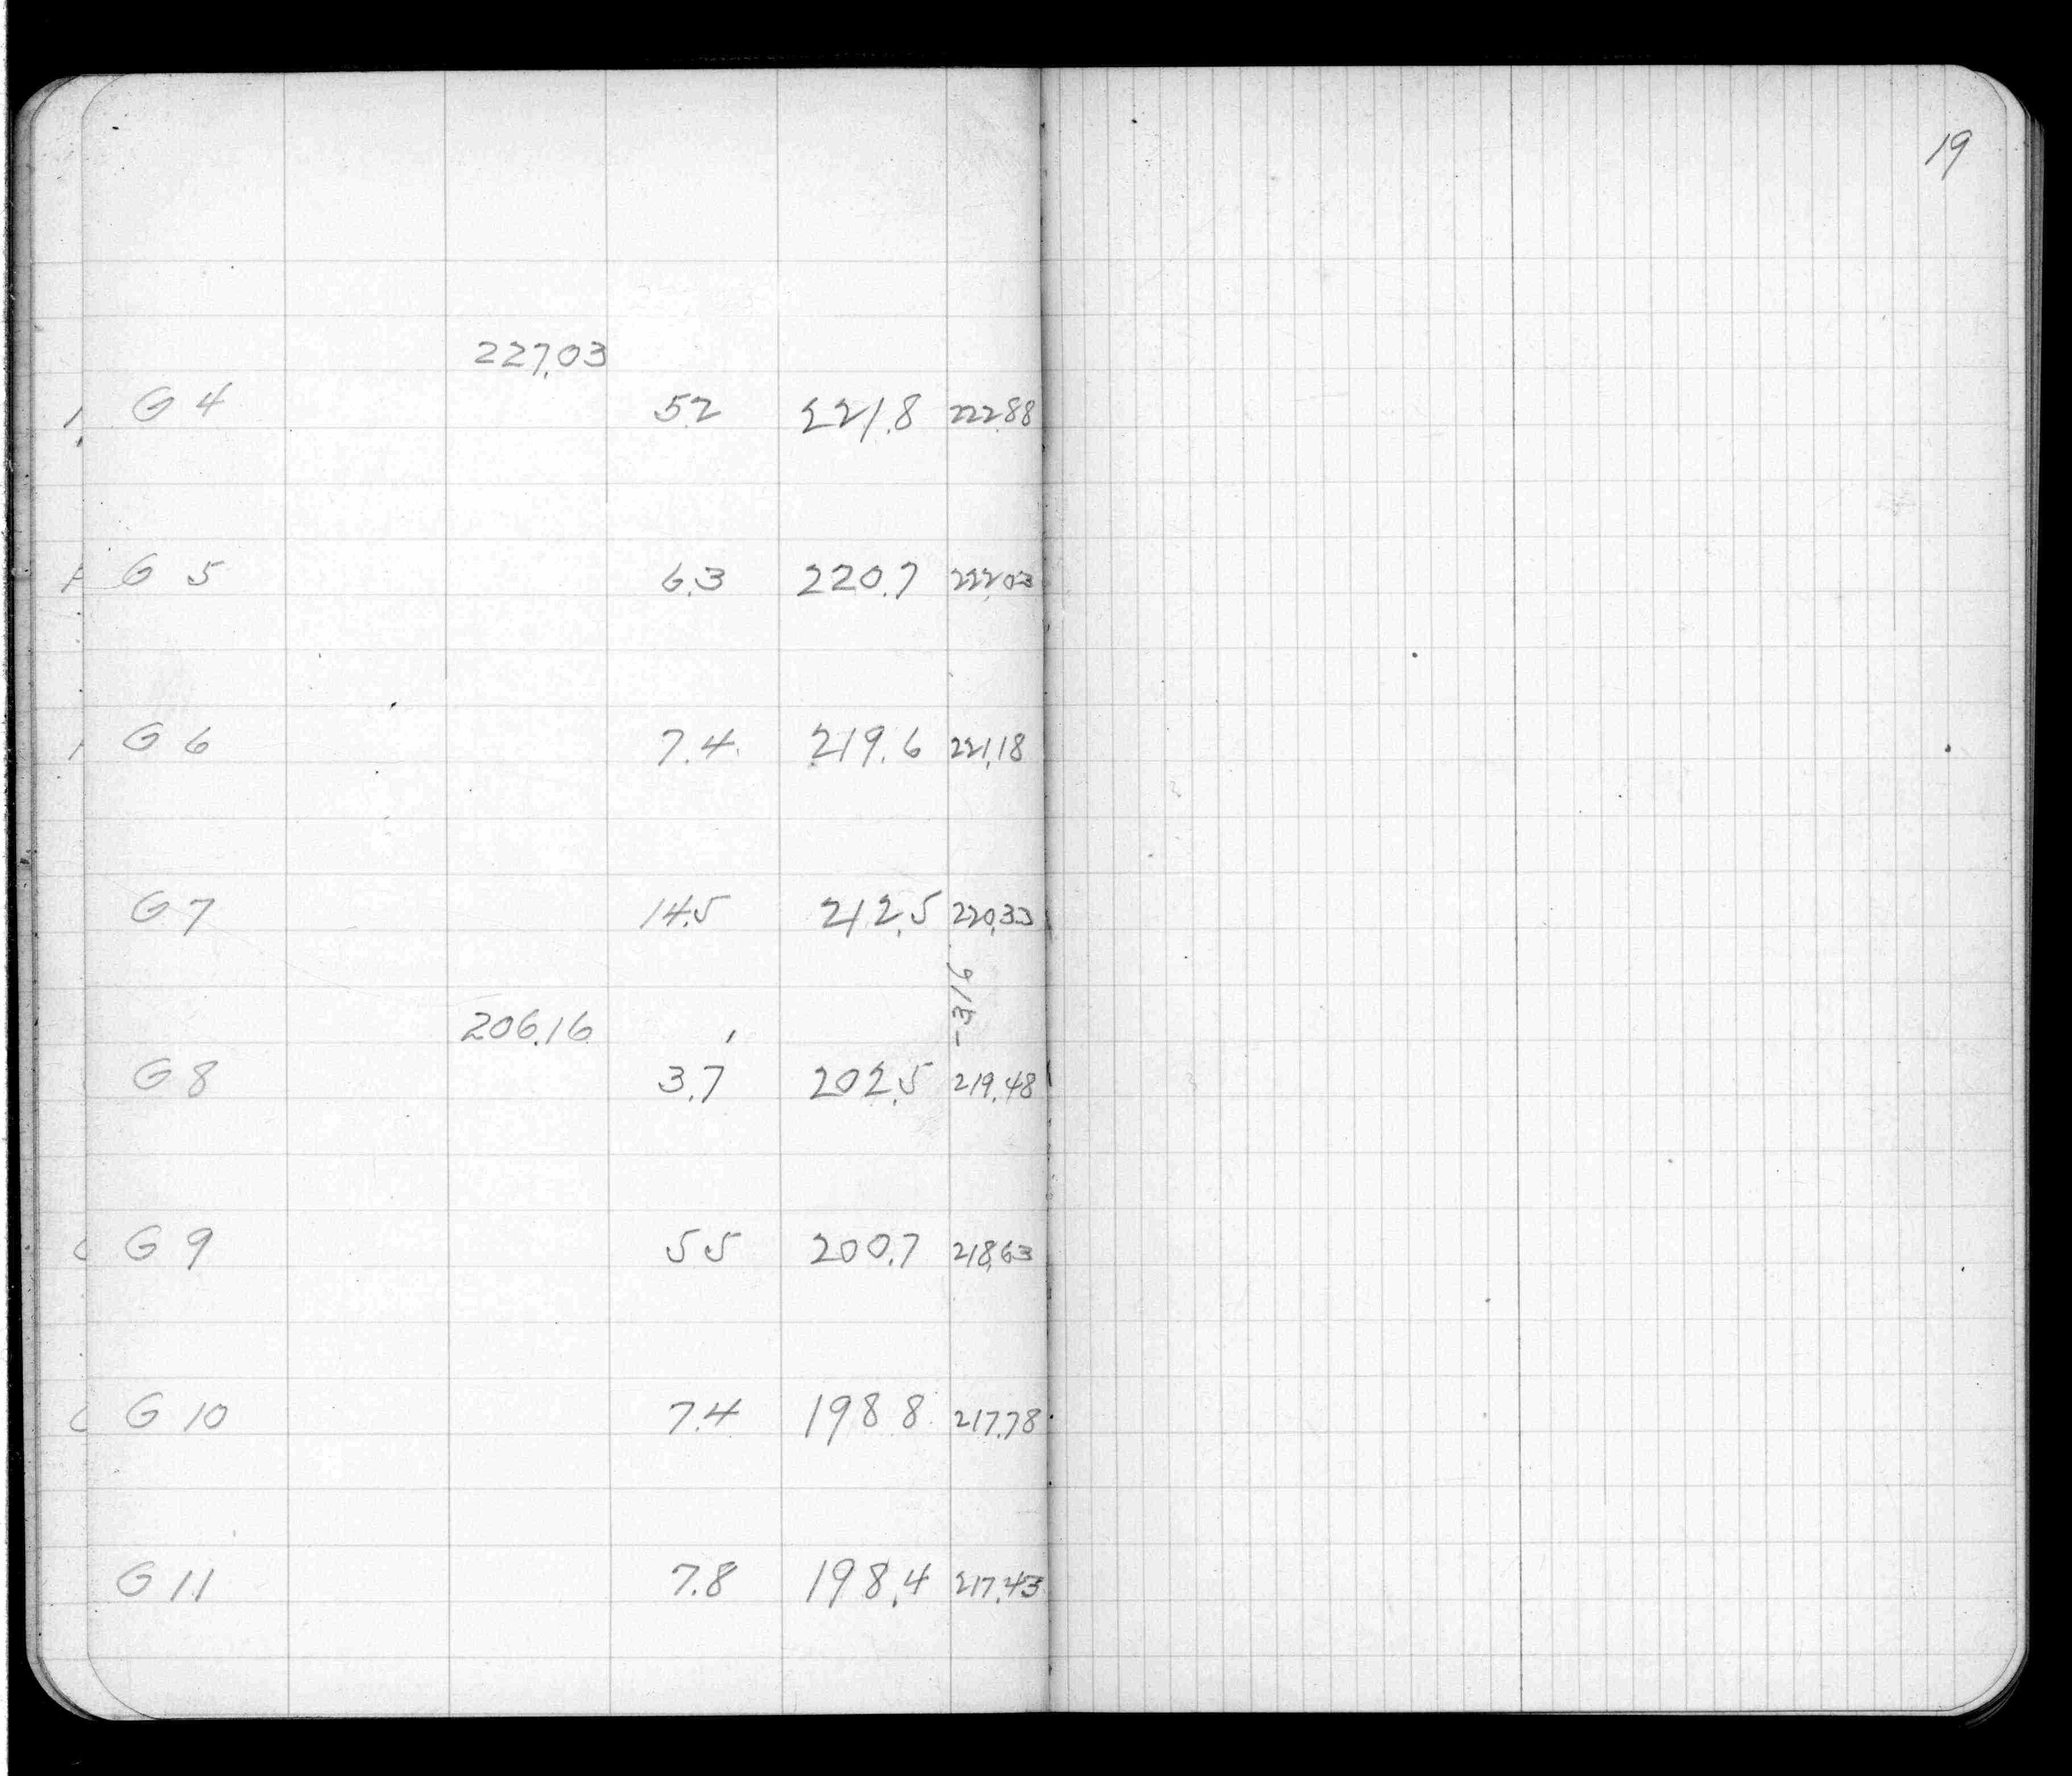 19
227.03
G 4 5.2 221.8 222.88
G 5 6.3 220.7 222.03
G 6 7.4 219.6 221.18
G 7 14.5 212.5 220.33
-316
206.16
G 8 3.7 202.5 219.48
G 9 5 5 200.7 218.63
G 10 7.4 198 8 217.78
G 11 7.8 198.4 217.43